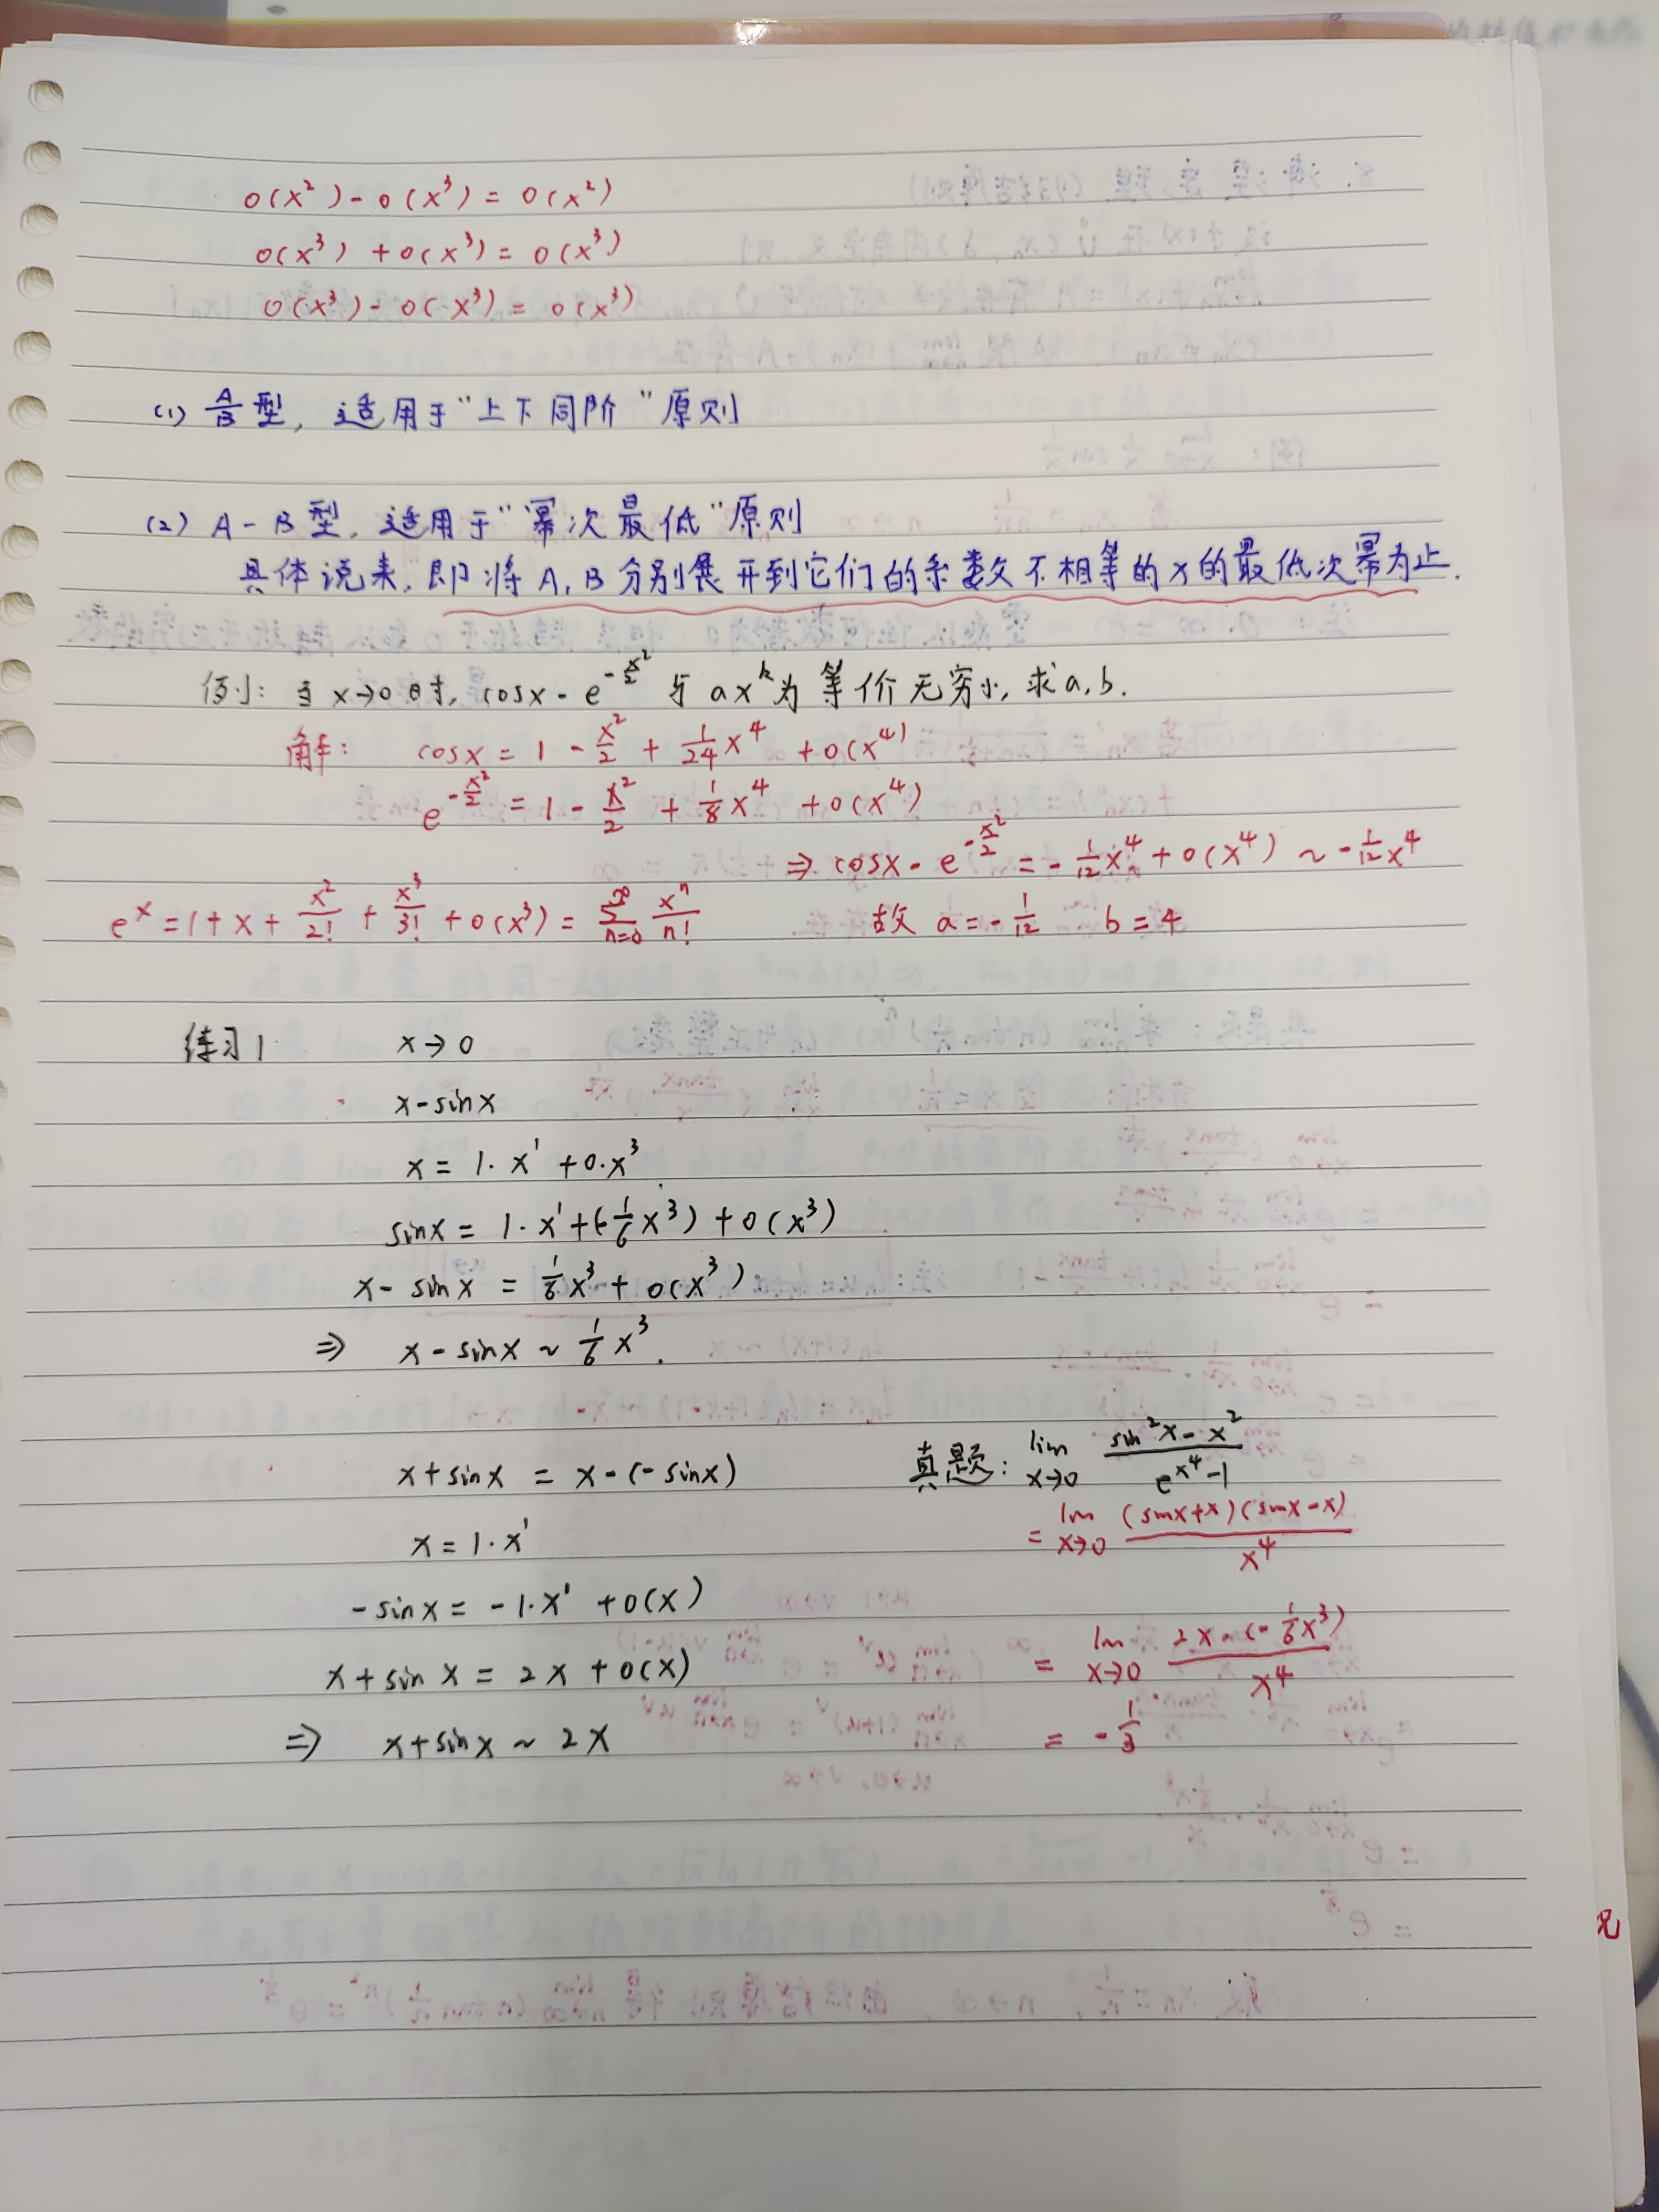 o(x²) - o(x³) = o(x²)
o(x³) + o(x³) = o(x³)
o(x³) - o(x³) = o(x³)
(1) A/B 型, 适用于"上下同阶"原则
(2) A-B型, 适用于"幂次最低"原则
具体说来, 即将A, B分别展开到它们的系数不相等的x的最低次幂为止.
例1: 当x→0时, cosx - e^(-x²/2) 与 ax^b 为等价无穷小, 求a, b.
解: cosx = 1 - x²/2 + 1/24 x⁴ + o(x⁴)
e^(-x²/2) = 1 - x²/2 + 1/8 x⁴ + o(x⁴)
⇒ cosx - e^(-x²/2) = -1/12 x⁴ + o(x⁴) ~ -1/12 x⁴
e^x = 1 + x + x²/2! + x³/3! + o(x³) = ∑_(n=0)^∞ x^n/n! 故 a = -1/12 b = 4
练习1 x→0
x - sinx
x = 1·x¹ + 0·x³
sinx = 1·x¹ + (-1/6 x³) + o(x³)
x - sinx = 1/6 x³ + o(x³)
⇒ x - sinx ~ 1/6 x³.
x + sinx = x - (-sinx)
x = 1·x¹
-sinx = -1·x¹ + o(x)
x + sinx = 2x + o(x)
⇒ x + sinx ~ 2x
真题: lim_(x→0) (sin²x - x²)/(e^(x⁴) - 1)
= lim_(x→0) (sinx+x)(sinx-x)/x⁴
= lim_(x→0) 2x·(-1/6 x³)/x⁴
= -1/3
况